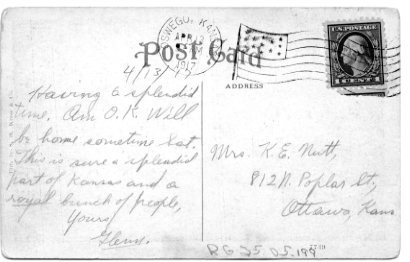 OSWEGO, KANS.
APR 12
M
1917
U.S. POSTAGE
1 CENT 1
Post Card
4/13/17
ADDRESS
Having a splendid
time. Am O.K. Will
be home sometime Sat.
This is sure a splendid
part of Kansas and a
royal bunch of people,
Yours,
Glenn.
Mrs. K.E. Nutt,
812 N. Poplar St,
Ottawa, Kans
RG 25 05.199